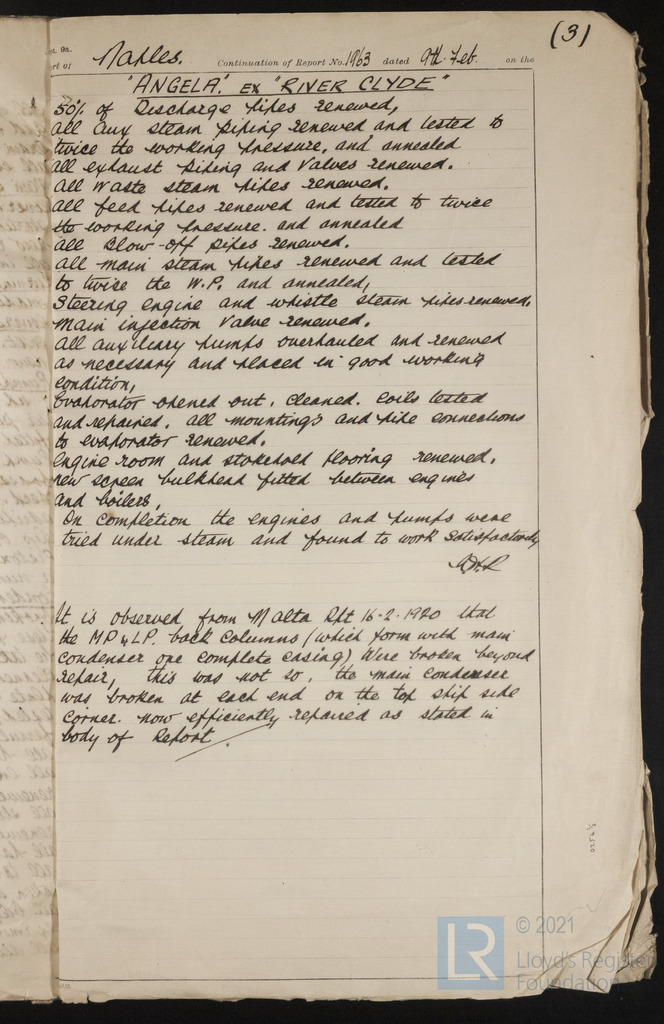 (3)
Rpt. 9a.
Port of Naples. Continuation of Report No. 1963 dated 9th Feb. on the
"ANGELA". EX "RIVER CLYDE"
50% of Discharge pipes renewed,
All Aux steam piping renewed and tested to
twice the working pressure, and annealed
All exhaust piping and valves renewed.
All Waste steam pipes renewed.
All feed pipes renewed and tested to twice
the working pressure. and annealed
All Blow-off pipes renewed.
All main steam pipes renewed and tested
to twice the W.P. and annealed,
Steering engine and whistle steam pipes renewed.
Main injection Valve renewed.
All auxiliary pumps overhauled and renewed
as necessary and placed in good working
condition,
Evaporator opened out, cleaned. Coils tested
and repaired. All mountings and pipe connections
to evaporator renewed.
Engine room and stokehold flooring renewed.
New screen bulkhead fitted between engines
and boilers,
On completion the engines and pumps were
tried under steam and found to work satisfactorily
It is observed from Malta Rpt 16-2-1920 that
the MP & LP. back columns (which form with main
condenser one complete casing) Were broken beyond
repair, this was not so, the main condenser
was broken at each end on the top ship side
corner. now efficiently repaired as stated in
body of Report.
© 2021
LR
Lloyd's Register
Foundation